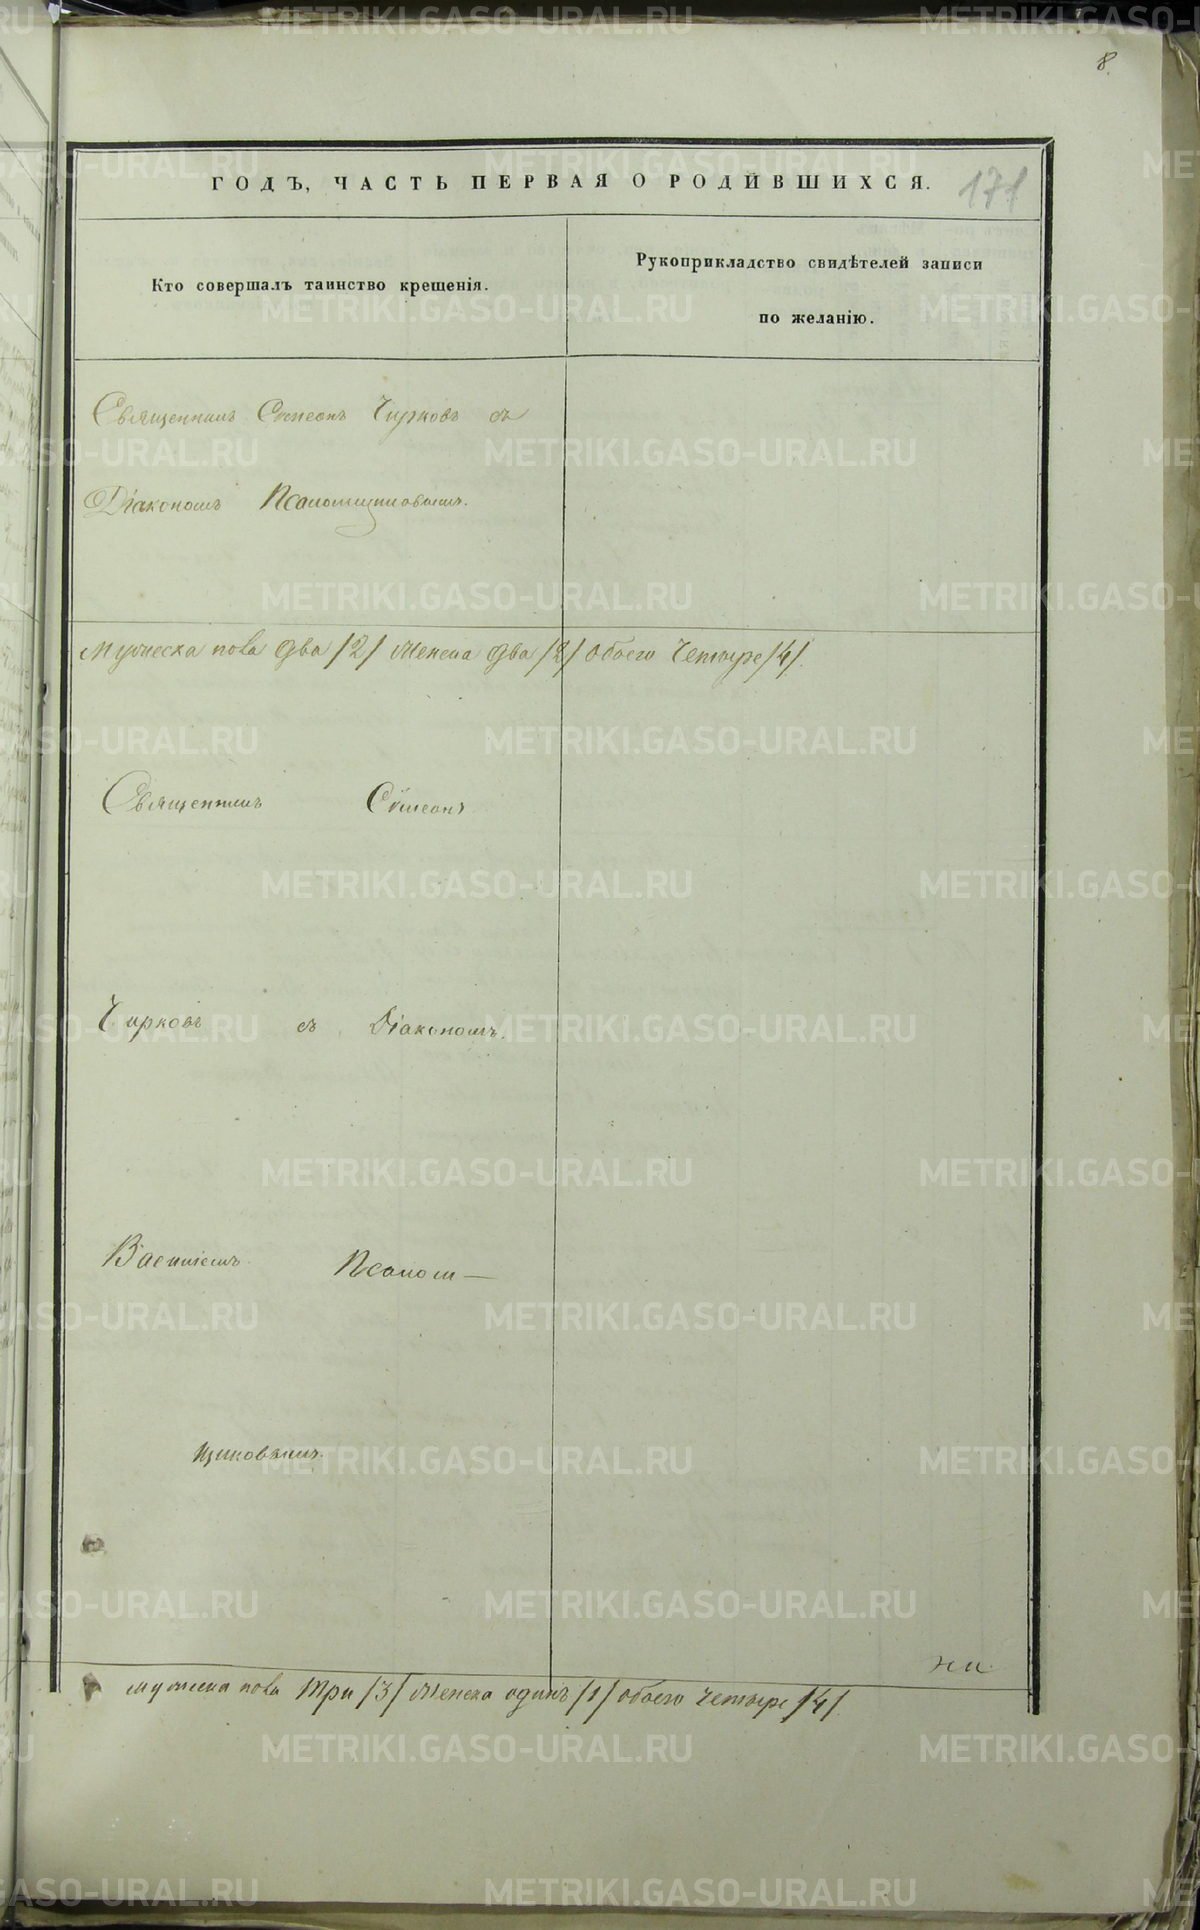 8.
ГОДЪ, ЧАСТЬ ПЕРВАЯ О РОДИВШИХСЯ. 171
Кто совершалъ таинство крещенія.
Рукоприкладство свидѣтелей записи
по желанію.
Священникъ Симеонъ Чирковъ съ
Діакономъ Псаломщиковымъ.
Мужеска пола два /2/ Женска два /2/ обоего Четыре /4/.
Священникъ Симеонъ
Чирковъ съ Діакономъ
Василіемъ Псалом—
щиковымъ.
ни
мужеска пола три /3/ Женска одинъ /1/ обоего четыре /4/
METRIKI.GASO-URAL.RU